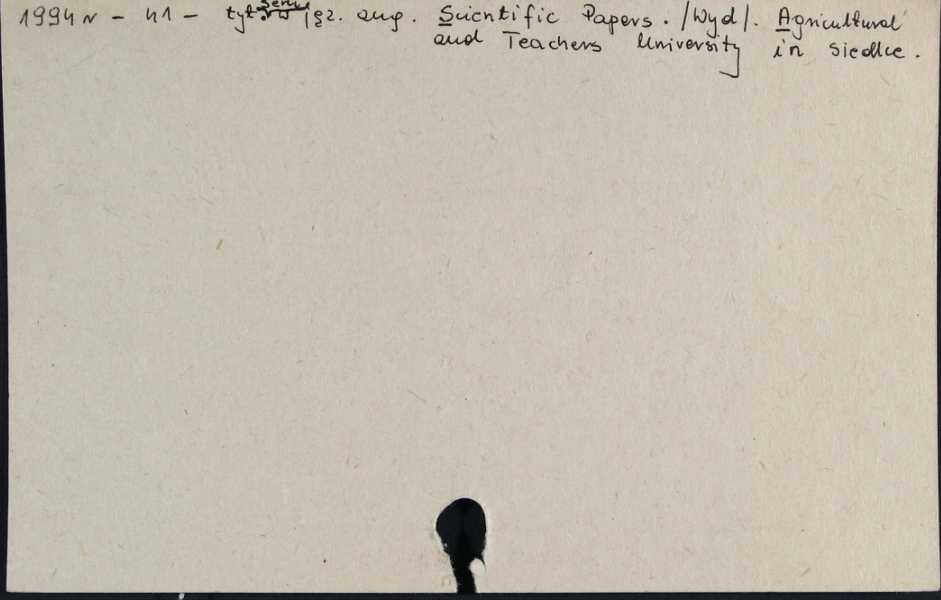 1994 n - 41 - tyt. serii w jęz. ang. Scientific Papers. /Wyd/. Agricultural
and Teachers University in Siedlce.